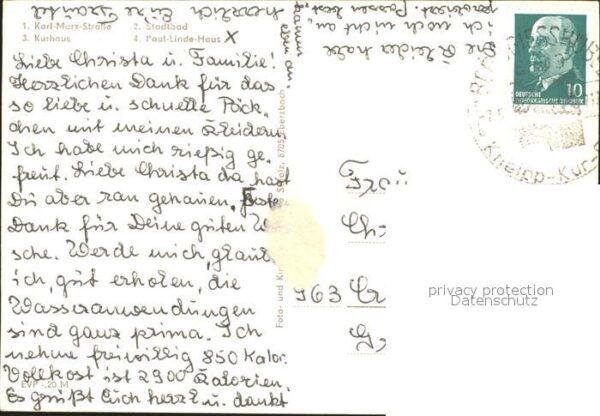 1. Karl-Marx-Straße 2. Stadtbad
3. Kurhaus 4. Paul-Linde-Haus X
Liebe Christa u. Familie!
Herzlichen Dank für das
so liebe u. schnelle Päck-
chen mit meinen Kleidern.
Ich habe mich rießig ge-
freut. Liebe Christa da hast
Du aber ran gehauen. Beste
Dank für Deine guten W
sche. Werde mich, glaub
ich, gut erholen, die
Wasseranwendungen
sind ganz prima. Ich
nehme freiwillig 850 Kalor.
Vollkost ist 2900 Kalorien.
Es grüßt Euch herzl. u. dankt
EVP -,20 M
herzlich Eure
Die Kleider habe
ich noch nicht an,
probiert. Passen best.
eben an
Foto- und 8705 Ebersbach
Frau
Ch
963 Cr
G
DEUTSCHE
DEMOKRATISCHE REPUBLIK
10
Kneipp-Kur-
privacy protection
Datenschutz